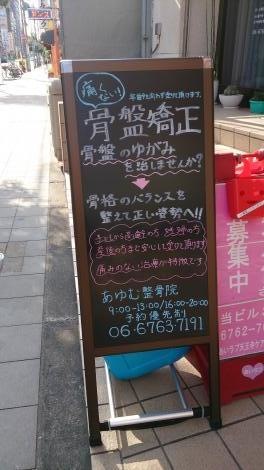 痛くない!
年齢問わず受け頂けます。
骨盤矯正
骨盤のゆがみ
を治しませんか?
骨格のバランスを
整えて正しい姿勢へ!!
子供から高齢の方、妊婦の方
産後の方まで安心して受けて頂けます
痛みのない治療が特徴です
あゆむ整骨院
9:00-13:00/16:00-20:00
予約優先制
06-6763-7191
募集中
当ビル
6762-70